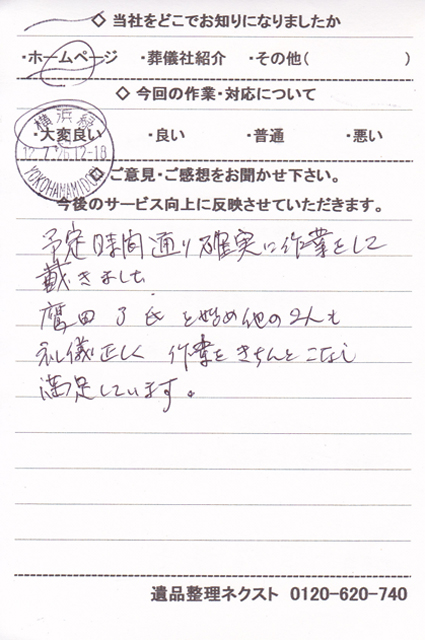 ◇ 当社をどこでお知りになりましたか
・ホームページ ・葬儀社紹介 ・その他( )
◇ 今回の作業・対応について
・大変良い ・良い ・普通 ・悪い
横浜緑
12.7.26 12-18
YOKOHAMAMIDORI
◇ ご意見・ご感想をお聞かせ下さい。
今後のサービス向上に反映させていただきます。
予定時間通り確実に作業をして
戴きました
鷹田了氏を始め他の2人も
礼儀正しく 作業をきちんとこなし
満足しています。
遺品整理ネクスト 0120-620-740